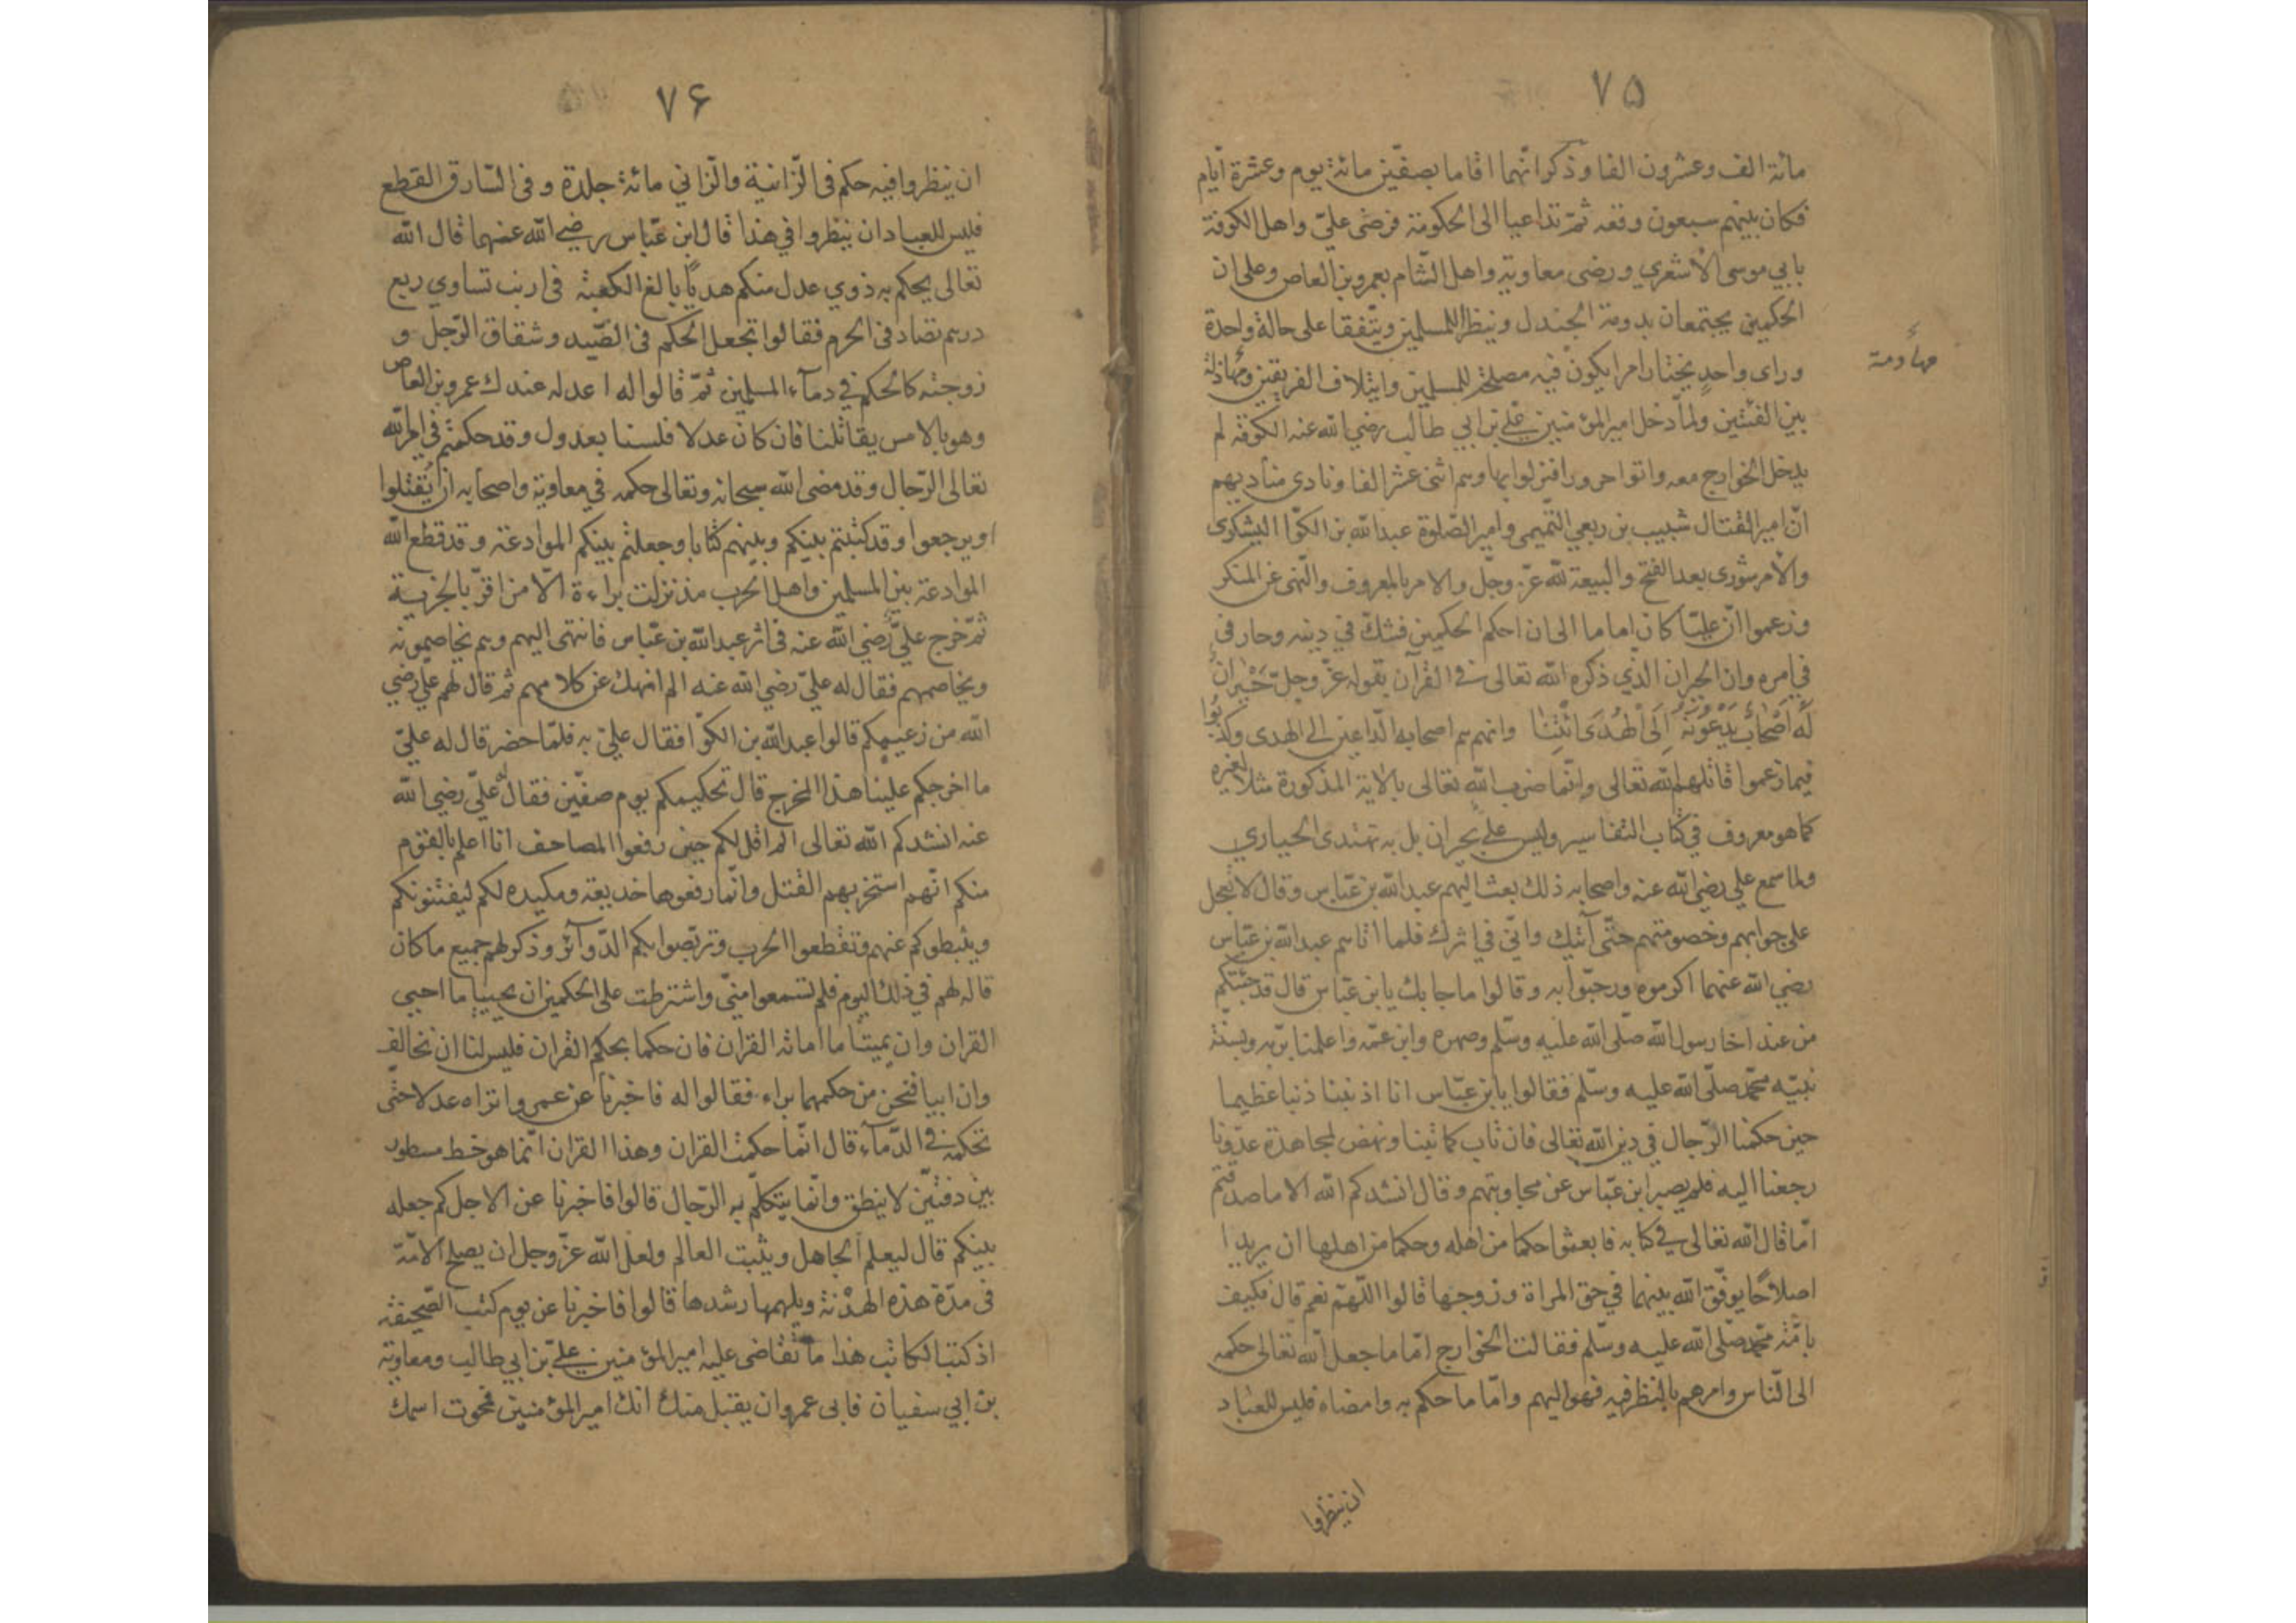 ٧٥
مائة الف وعشرون الفا وذكر انّهما اقاما بصفّين مائة يوم وعشرة ايّام
فكان بينهم سبعون وقعه ثمّ تداعيا الى الحكومة فرضى علىّ واهل الكوفة
بابي موسى الاشعري ورضى معاوية واهل الشّام بعمرو بن العاص وعلى ان
الحكمين يجتمعان بدومة الجندل وينظرا للمسلمين ويتّفقا على حالة واحدة
وراى واحدٍ يختار امر ايكون فيه مصلحة للمسلمين وايتلاف الفريقين ومهادنة
مهأومة
بين الفئتين ولمّا دخل امير المؤمنين علي بن ابي طالب رضي الله عنه الكوفة لم
يدخل الخوارج معه واتوا حرورا فنزلوا بها وهم اثنى عشر الفا ونادى مناديهم
انّ امير القتال شبيب بن ربعي التّميمى وامير الصّلوة عبد الله بن الكوّا اليشكرى
والامر شورى بعد الفتح والبيعة لله عزّ وجلّ والامر بالمعروف والنّهى عن المنكر
وزعموا انّ عليّا كان اماما الى ان احكم الحكمين فشكّ في دينه وحار فى
في امره وان الحيران الذي ذكره الله تعالى فى القرآن بقوله عزّ وجلّ حَيْرانَ
لَهُ اَصْحابٌ يَدْعُونَهُ اِلَى الْهُدَى ائْتِنا وانهم هم اصحابه الدّاعين الى الهدى وكذبوا
فيما زعموا قاتلهم الله تعالى وانّما ضرب الله تعالى بالاية المذكورة مثلا لغيره
كما هو معروف في كتاب التفاسير وليس علي بحيران بل به تهتدى الحيارى
ولما سمع علي رضي الله عنه واصحابه ذلك بعث اليهم عبد الله بن عبّاس وقال لا تعجل
على جوابهم وخصومتهم حتّى آتيك وانّي في اثرك فلما اتاهم عبد الله بن عبّاس
رضي الله عنهما اكرموه ورحبّوا به وقالوا ما جابك يابن عبّاس قال قد جئتكم
من عند اخا رسول الله صلّى الله عليه وسلّم وصهره وابن عمّه واعلمنا بربّه وبسنّة
نبيّه محمّد صلّى الله عليه وسلّم فقالوا يابن عبّاس انا اذنبنا ذنبا عظيما
حين حكمنا الرّجال في دين الله تعالى فان تاب كما تبنا ونهض لمجاهدة عدوّنا
رجعنا اليه فلم يصبر ابن عبّاس عن مجاوبتهم وقال انشدكم الله الا ما صدقتم
امّا قال الله تعالى في كتابه فابعثوا حكما من اهله وحكما من اهلها ان يريدا
اصلاحًا يوفّق الله بينهما في حق المراة وزوجها قالوا اللّهمّ نعم قال فكيف
بامّة محمّد صلّى الله عليه وسلّم فقالت الخوارج امّا ما جعل الله تعالى حكمه
الى النّاس وامرهم بالنظر فيه فهو اليهم وامّا ما حكم به وامضاه فليس للعباد
ان ينظروا
٧۶
ان ينظروا فيه حكم فى الزّانية والزّاني مائة جلدة وفى السّارق القطع
فليس للعباد ان ينظروا في هذا قال ابن عبّاس رضي الله عنهما قال الله
تعالى يحكم به ذوي عدل منكم هديًا بالغ الكعبة فى ارنب تساوي ربع
درهم تصاد فى الحرم فقالوا تجعل الحكم فى الصّيد وشقاق الرّجل و
زوجته كالحكم في دمآء المسلمين ثمّ قالوا له اعدله عندك عمرو بن العاص
وهو بالامس يقاتلنا فان كان عدلا فلسنا بعدول وقد حكمتم في امر الله
تعالى الرّجال وقد مضى الله سبحانه وتعالى حكمه في معاوية واصحابه ان يُقتلوا
اويرجعوا وقد كتبتم بينكم وبينهم كتابا وجعلتم بينكم الموادعة وقد قطع الله
الموادعة بين المسلمين واهل الحرب مذ نزلت براءة الّا من اقرّ بالجزية
ثمّ خرج عليّ رضي الله عنه فى اثر عبد الله بن عبّاس فانتهى اليهم وهم يخاصمونه
ويخاصمهم فقال له عليّ رضي الله عنه الم انهك عن كلامهم ثم قال لهم عليّ رضي
الله من زعيمكم قالوا عبد الله بن الكوّا فقال عليّ به فلمّا حضر قال له عليّ
ما اخرجكم علينا هذا المخرج قال تحكيمكم يوم صفّين فقال له عليّ رضي الله
عنه انشدكم الله تعالى الم اقل لكم حين رفعوا المصاحف انا اعلم بالقوم
منكم انّهم استحر بهم القتل وانّما رفعوها خديعة ومكيده لكم ليفتنونكم
ويثبطوكم عنهم وتقطعوا الحرب وتربّصوا بكم الدّوآئر وذكر لهم جميع ما كان
قاله لهم في ذلك اليوم فلم تسمعوا منّي واشترطت على الحكمين ان يحييا ما احيى
القران وان يميتا ما اماته القران فان حكما بحكم القران فليس لنا ان نخالف
وان ابيا فنحن من حكمهما براء فقالوا له فاخبرنا عن عمرو اتراه عدلا حتّى
تحكمه في الدّمآء قال انّما حكمت القران وهذا القران انّما هو خط مسطور
بين دفتيّن لا ينطق وانّما يتكلّم به الرّجال قالوا فاخبرنا عن الاجل كم جعله
بينكم قال ليعلم الجاهل ويثبت العالم ولعل الله عزّ وجل ان يصلح الامّة
فى مدّة هذه الهدْنة ويلهمها رشدها قالوا فاخبرنا عن يوم كتب الصّحيفة
اذ كتب الكاتب هذا ما تقاضى عليه امير المؤمنين علي بن ابي طالب ومعاوية
بن ابي سفيان فابى عمرو ان يقبل منك انك امير المؤمنين فمحوت اسمك